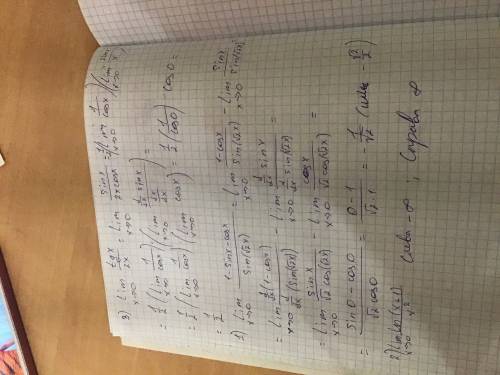 3) lim x→0 tgx/2x = lim x→0 sinx/2xcosx = 1/2 (lim x→0 1/cosx)(lim x→0 sinx/x) =
= 1/2 (lim x→0 1/cosx)(lim x→0 d/dx sinx / d/dx x) =
= 1/2 (lim x→0 1/cosx)(lim x→0 cosx) = 1/2 (1/cos0) cos0 =
= 1/2
1) lim x→0 1-sinx-cosx / sin(√2x) = lim x→0 1-cosx / sin(√2x) - lim x→0 sinx / sin(√2x) =
= lim x→0 d/dx(1-cosx) / d/dx(sin(√2x)) - lim x→0 d/dx sinx / d/dx sin(√2x) =
= lim x→0 sinx / √2cos(√2x) - lim x→0 cosx / √2cos(√2x) =
= sin0-cos0 / √2cos0 = 0-1 / √2·1 = 1/√2 (или - √2/2)
2) lim x→0 ln(x+1) / x² Слева -∞; Справа ∞